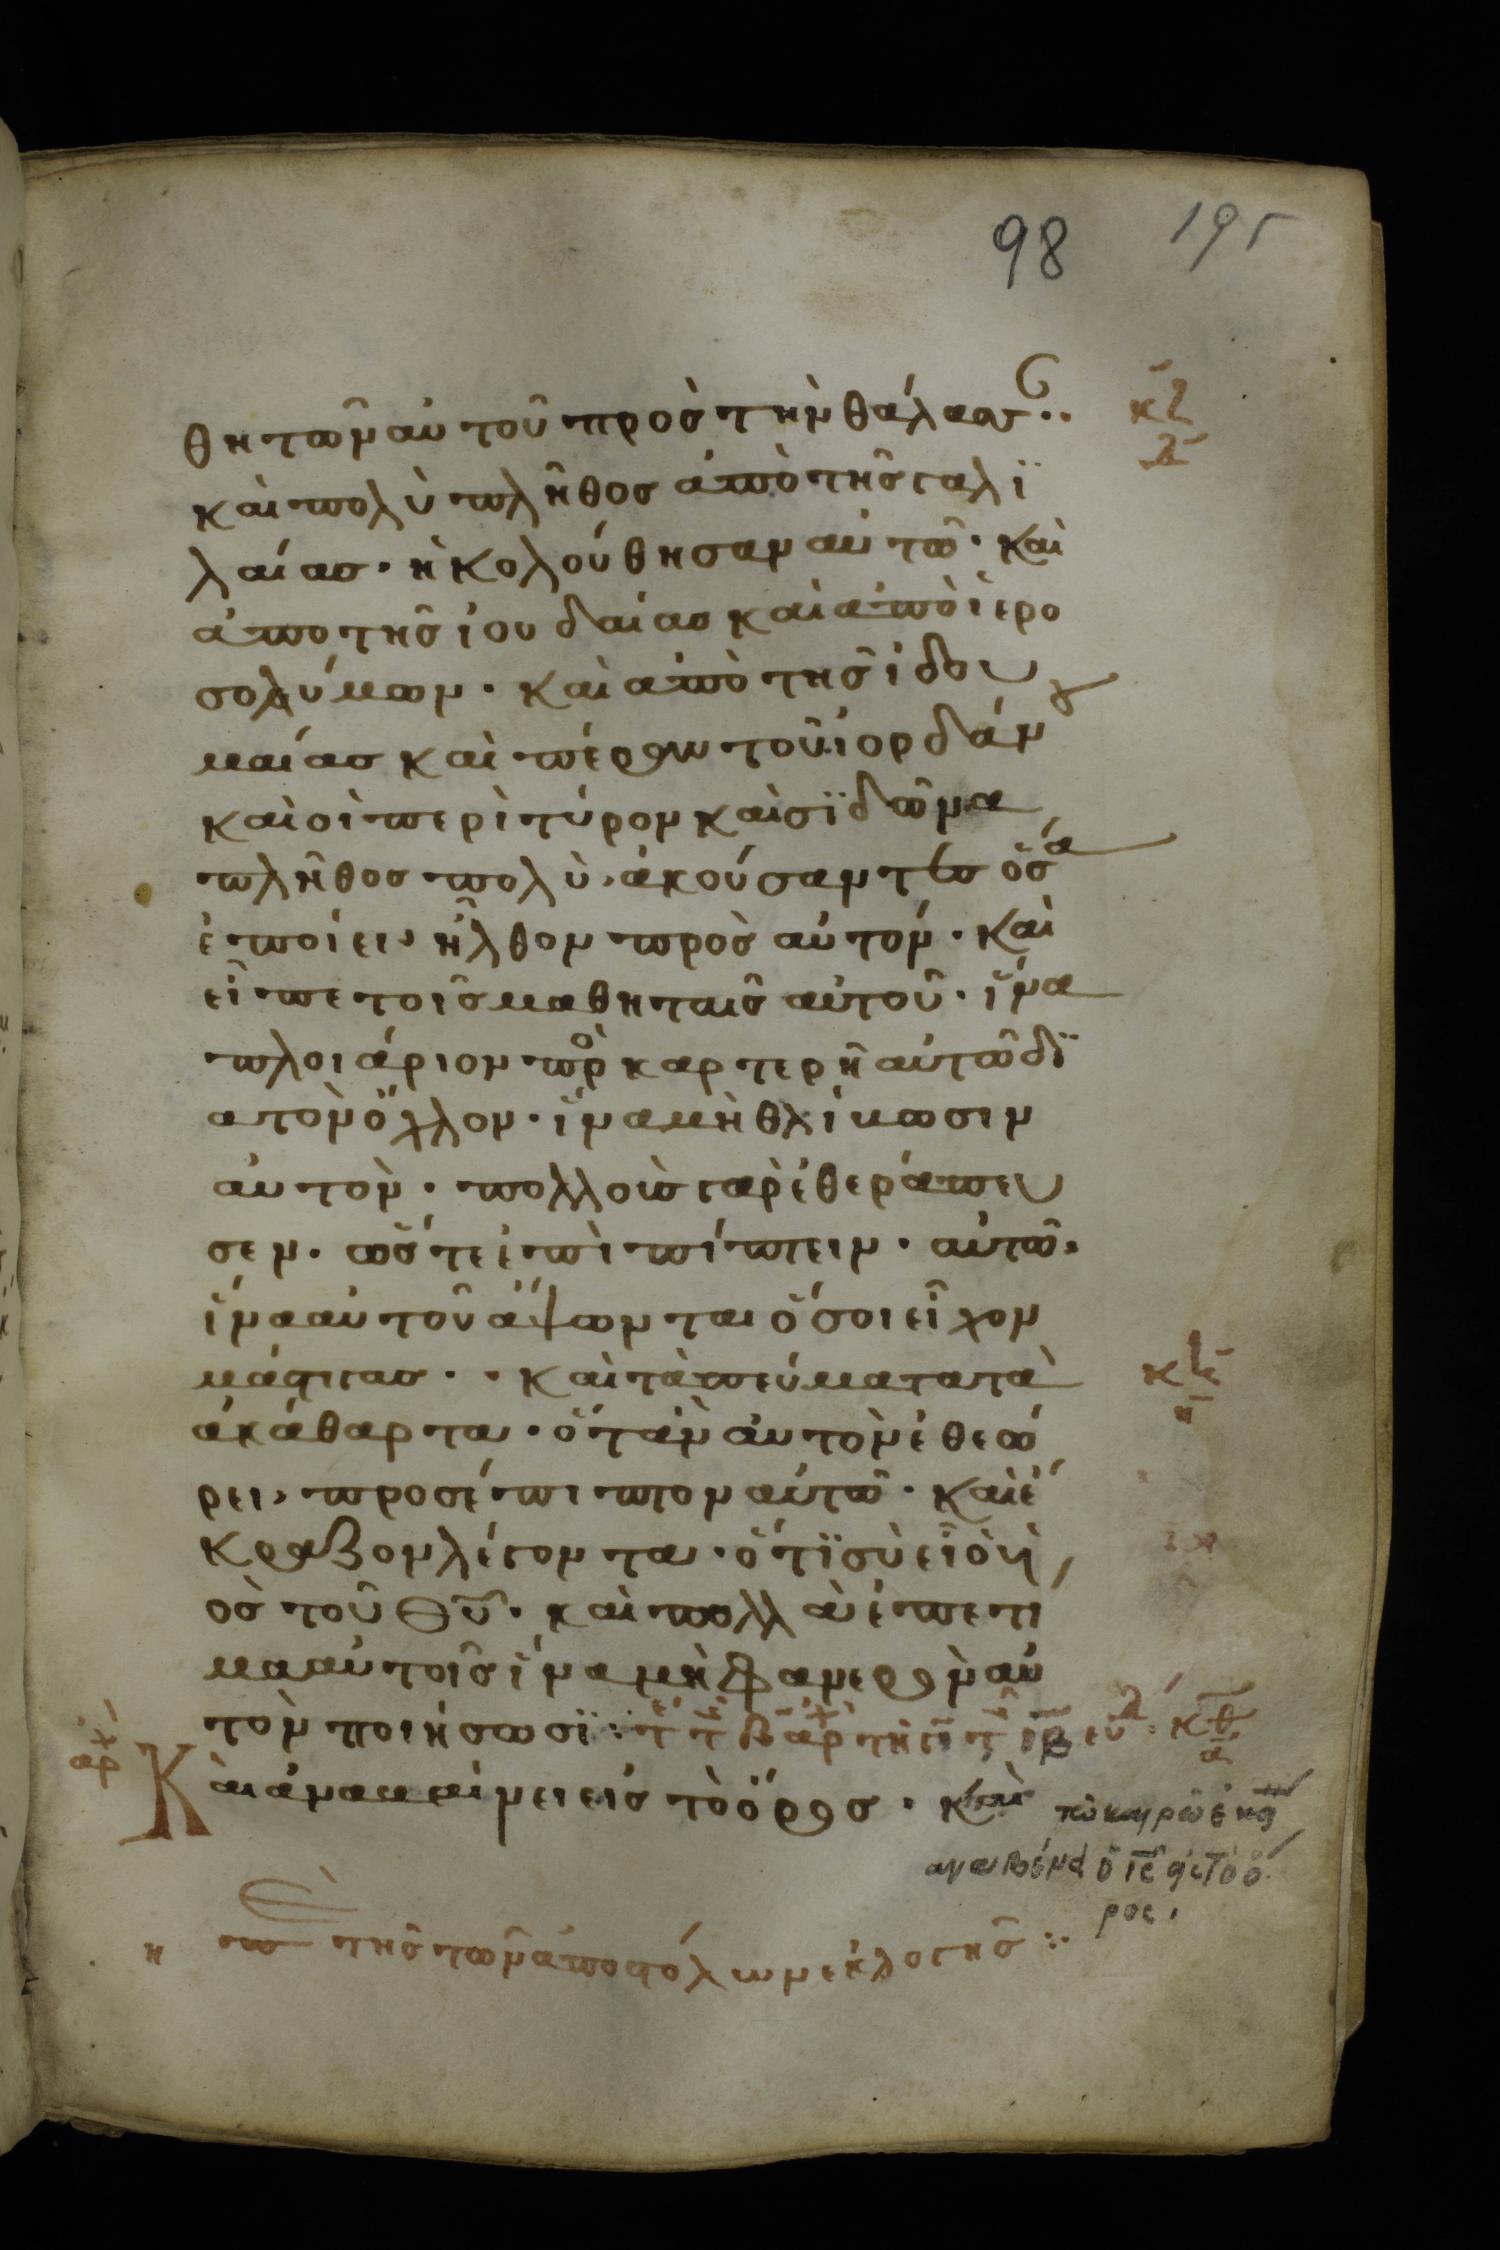 98
θητῶν αὐτοῦ πρὸς τὴν θάλασσ
καὶ πολὺ πλῆθος ἀπὸ τῆς γαλϊ
λαίας · ἠκολούθησαν αὐτῶ · καὶ
ἀπο τῆς ἰουδαίας καὶ ἀπὸ ἱερο
σολύμων · καὶ ἀπὸ τῆς ἰδου
μαίας καὶ πέραν τοῦ ἰορδάν
καὶ οἱ περὶ τύρον καὶ σϊδῶνα
πλῆθος πολὺ, ἀκούσαντες ὅσα
ἐποίει, ἦλθον πρὸς αὐτόν · καὶ
εἶπε τοῖς μαθηταῖς αὐτοῦ · ἵνα
πλοιάριον προκαρτερῆ αὐτῶ δϊ
α τὸν ὄχλον · ἵνα μὴ θλίβωσιν
αὐτὸν · πολλοὺς γὰρ ἐθεράπευ
σεν · ὥστε ἐπὶπίπτειν · αὐτῶ,
ἵνα αὐτοῦ ἅψωνται ὅσοι εἶχον
μάστιγας · · καὶ τὰ πνεύματα τὰ
ἀκάθαρτα · ὅταν αὐτὸν ἐθεώ
ρει, προσέπιπτον αὐτῶ · καὶ ἔ
κραζον λέγοντα · ὅτϊ σὺ εἶ ὁ ϋἱ
ος τοῦ θῦ · καὶ πολλὰ ἐπετι
μα αὐτοῖς ἵνα μὴ φανερὸν αὐ
τὸν ποιήσωσϊ :
Καὶ ἀναβαίνει εἰς τὸ ὄρος · καὶ
τῶ καιρῶ ἐκεί
ὁ ἰς εἰς τὸ ὄ
ρος,
η τῆς τῶν ἀποστόλων ἐκλογῆς :·